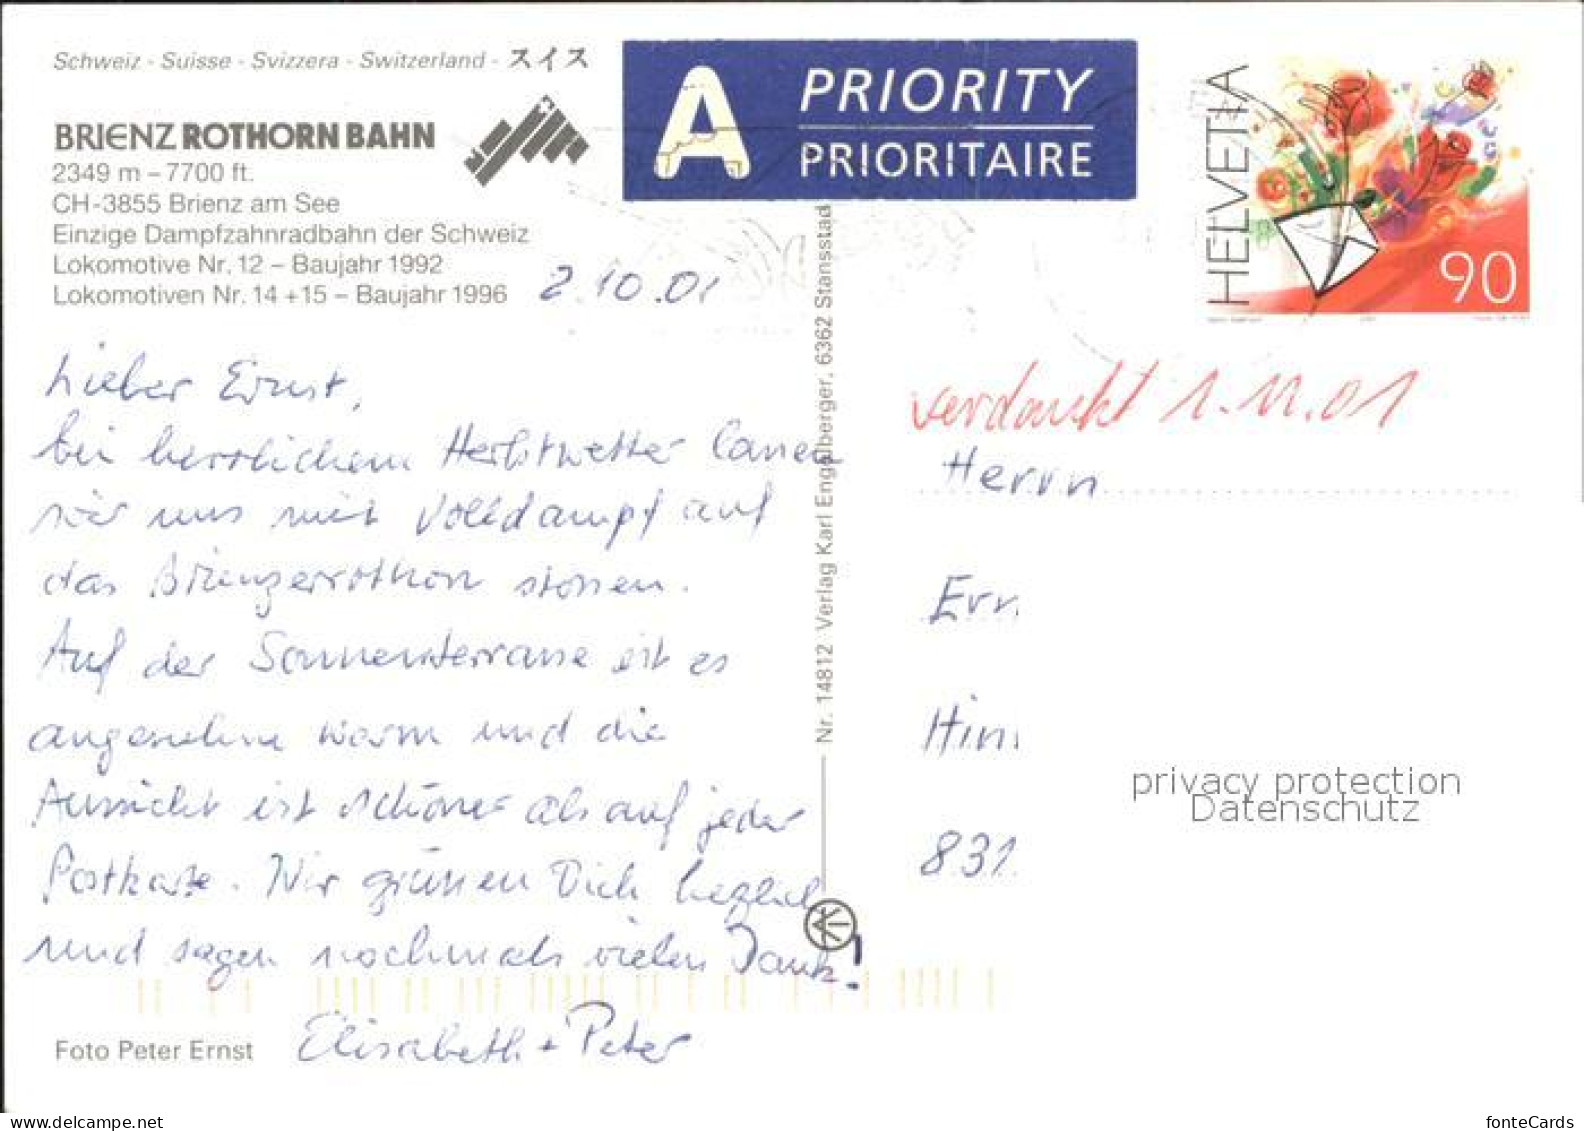 Schweiz - Suisse - Svizzera - Switzerland - スイス
BRIENZ ROTHORN BAHN
2349 m – 7700 ft.
CH-3855 Brienz am See
Einzige Dampfzahnradbahn der Schweiz
Lokomotive Nr. 12 – Baujahr 1992
Lokomotiven Nr. 14 + 15 – Baujahr 1996
2.10.01
Lieber Ernst,
bei herrlichem Herbstwetter lassen
wir uns mit Volldampf auf
das Brienzerrothorn stossen.
Auf der Sonnenterrasse ist es
angenehm warm und die
Aussicht ist schöner als auf jeder
Postkarte. Wir grüssen Dich herzlich
und sagen nochmals vielen Dank!
Elisabeth + Peter
Foto Peter Ernst
Nr. 14812 Verlag Karl Engelberger, 6362 Stansstad
A PRIORITY
PRIORITAIRE
HELVETIA
90
verdankt 1.11.01
Herrn
Ern
Hin
831
privacy protection
Datenschutz
www.delcampe.net
fonteCards